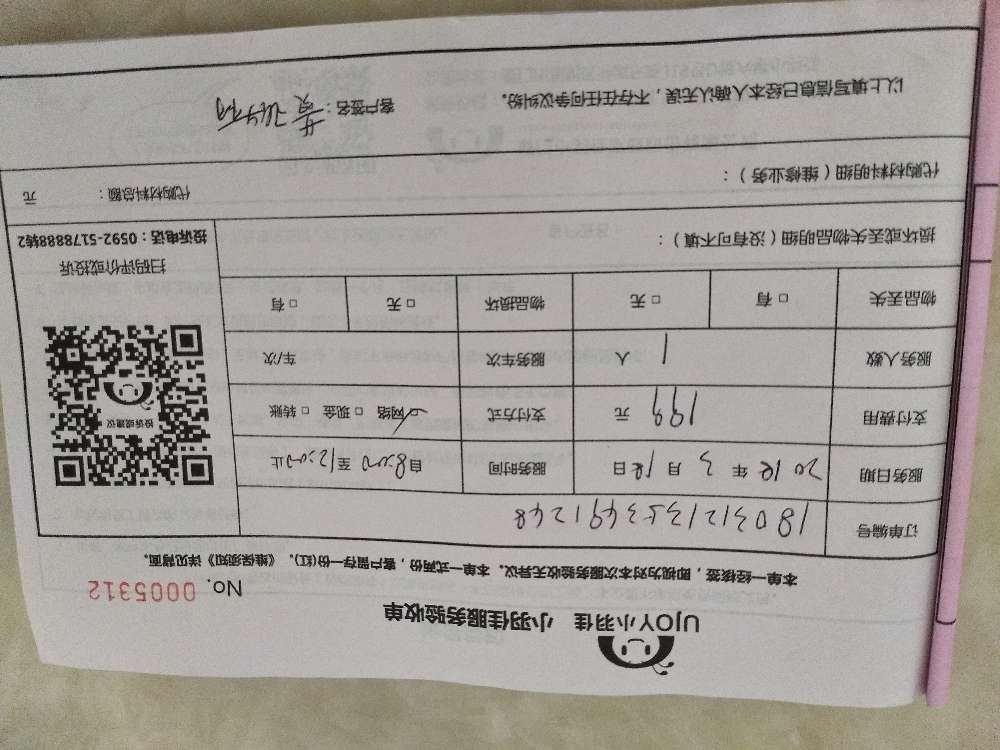 UJOY小羽佳 小羽佳服务验收单
No. 0005312
本单一经核签,即视为对本次服务验收无异议。本单一式两份,客户留存一份(红)。《维保须知》详见背面。
订单编号
服务日期 2018年3月18日 服务时间 自8:00至12:00止
支付费用 199 元 支付方式 ☑网络 □现金 □转账
服务人数 1 人 服务车次 车/次
物品丢失 □有 □无 物品损坏 □无 □有
投诉或建议
扫码评价或投诉
投诉电话:0592-5178888转2
损坏或丢失物品明细(没有可不填):
代购材料明细(维修业务): 代购材料总额: 元
以上填写信息已经本人确认无误,不存在任何争议纠纷。 客户签名: